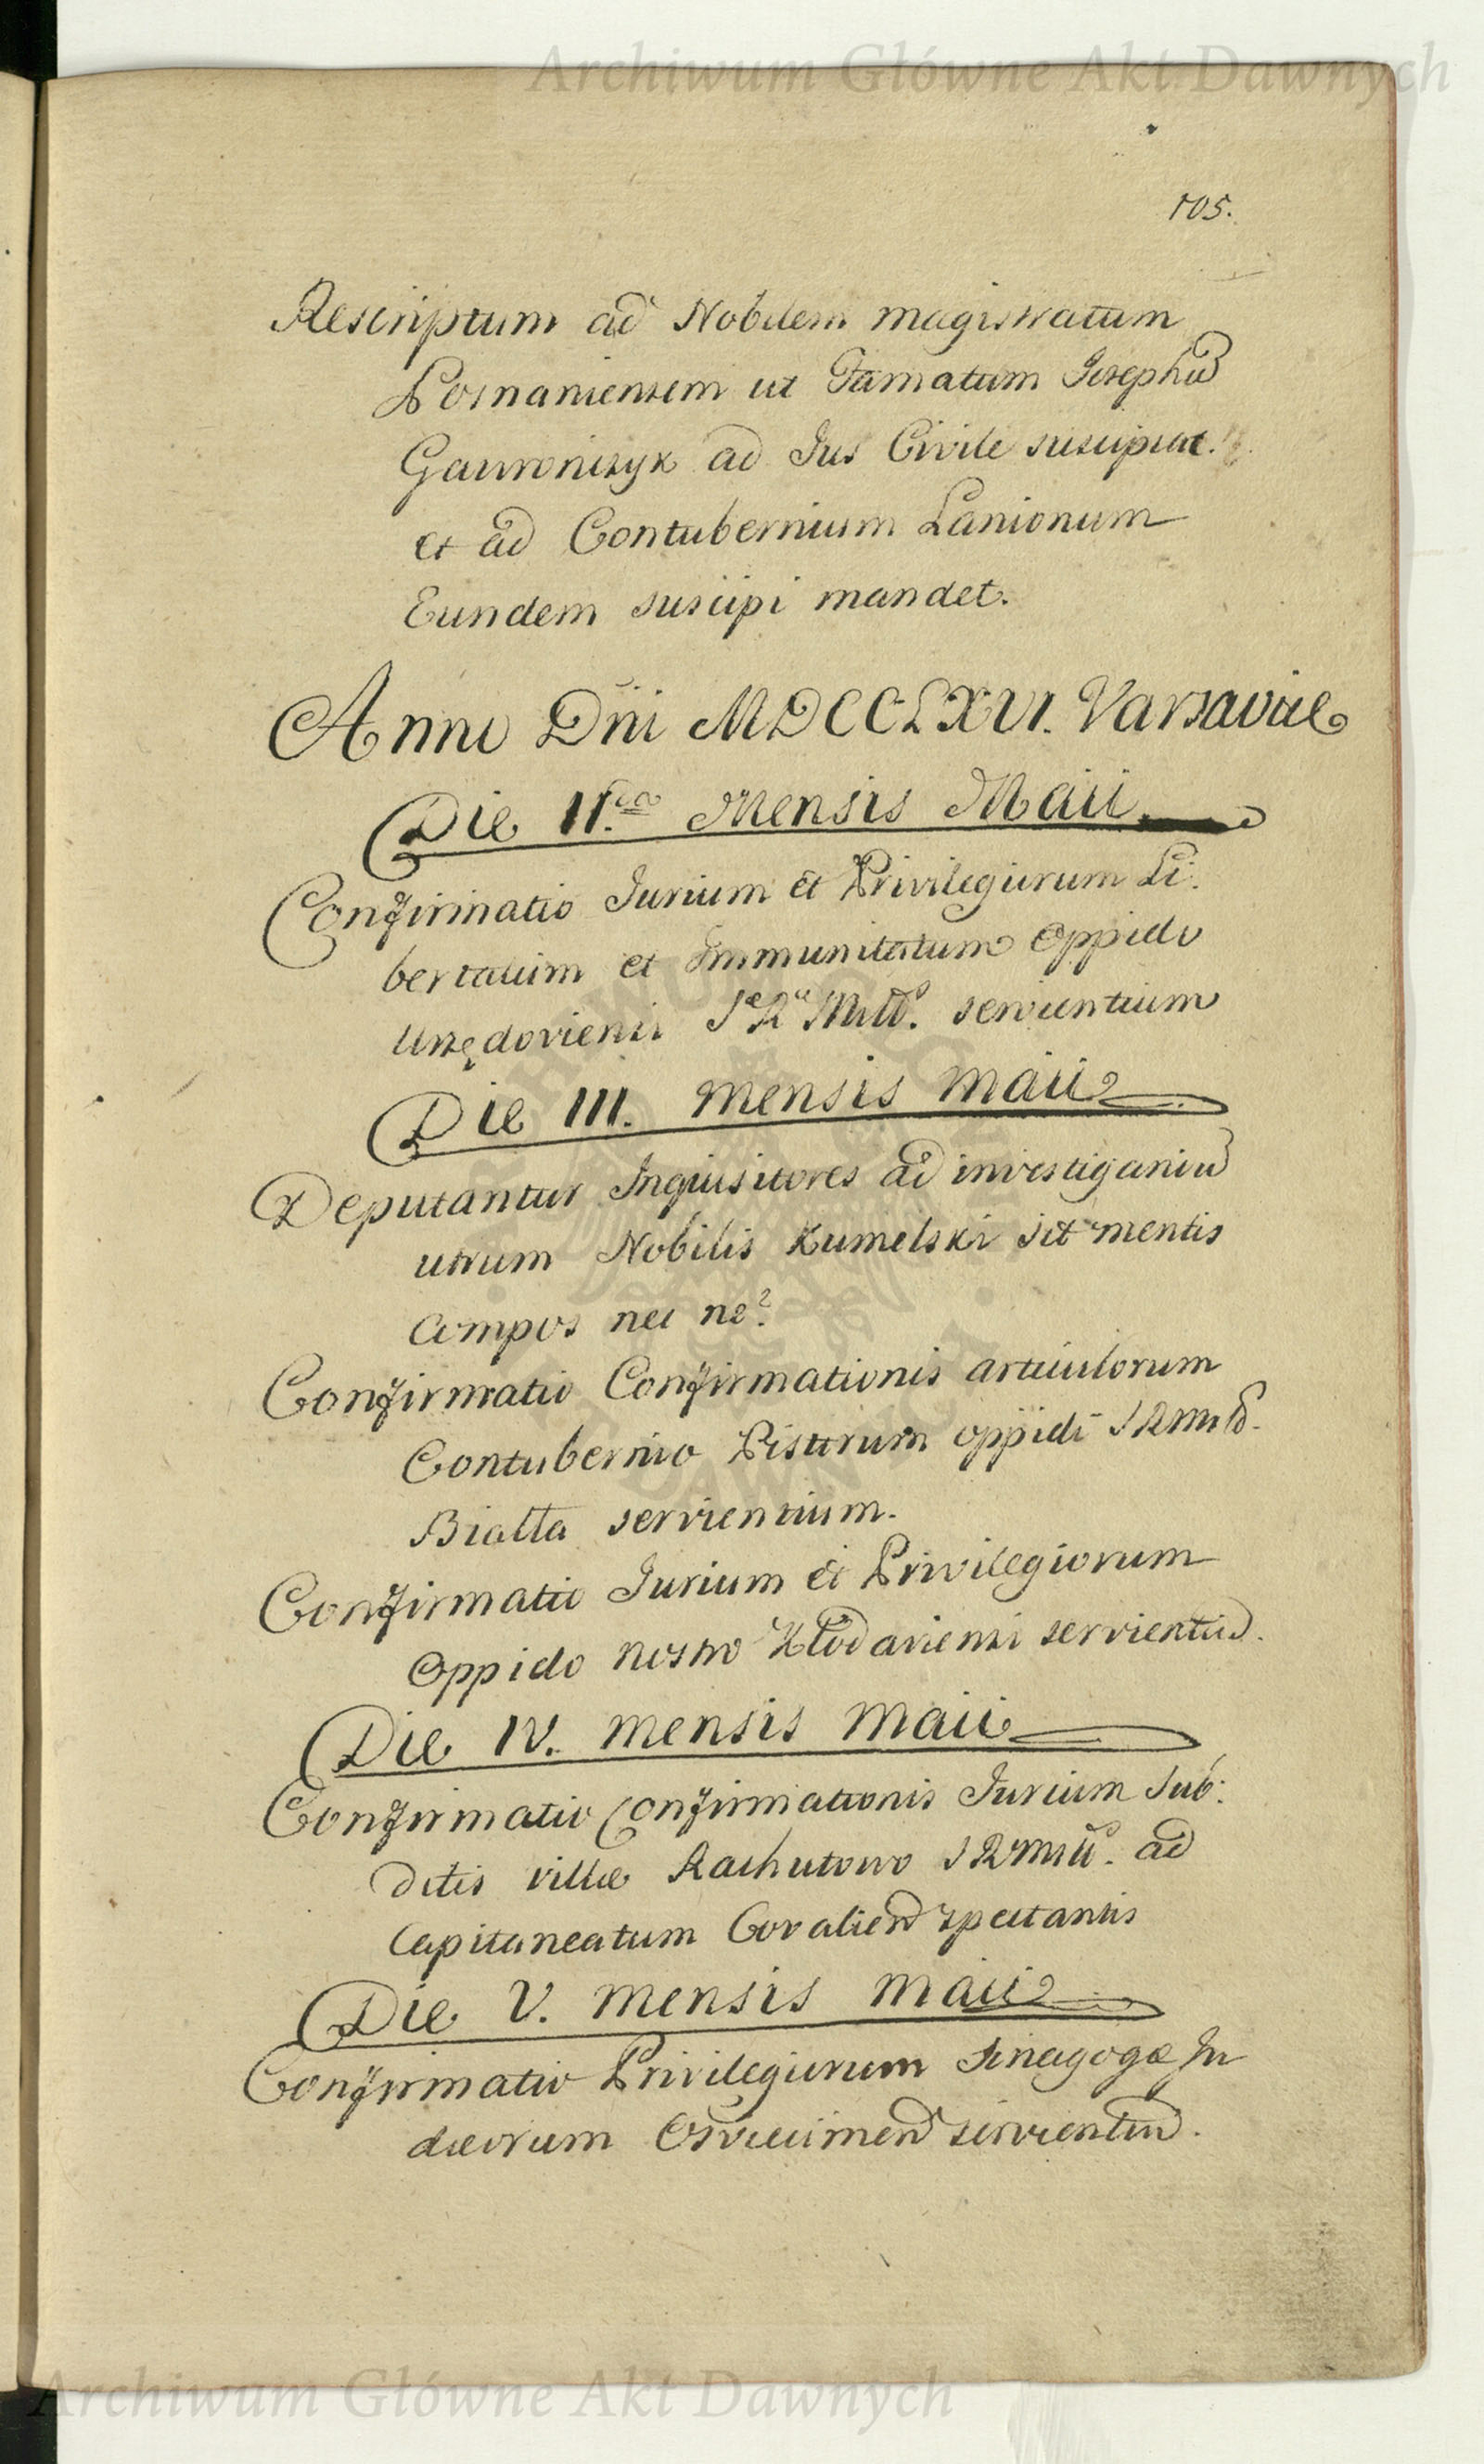 Archiwum Główne Akt Dawnych
105.
Rescriptum ad Nobilem magistratum
Posnaniensem ut Famatum Josephū
Gawronczyk ad Jus Civile suscipiat.
et ad Contubernium Lanionum
Eundem suscipi mandet.
Anno Dni MDCCLXVI. Varsaviae
Die II.da Mensis Maii
Confirmatio Jurium et Privilegiorum Li:
bertatum et Immunitatum Oppido
Urzędoviensi Servientium
Die III. mensis maii
Deputantur Inquisitores ad investigandū
utrum Nobilis Kumelski sit mentis
compos nec ne?
Confirmatio Confirmationis articulorum
Contubernio Pistorum oppidi
Bialla servientium.
Confirmatio Jurium et Privilegiorum
Oppido nostro Klodaviensi servientiū.
Die IV. mensis maii
Confirmatio Confirmationis Jurium Sub:
ditis villae Rachutowo ad
Capitaneatum Covalien spectantis
Die V. mensis maii
Confirmatio Privilegiorum Sinagogæ Ju
dæorum Osviecimen servientiū.
Archiwum Główne Akt Dawnych